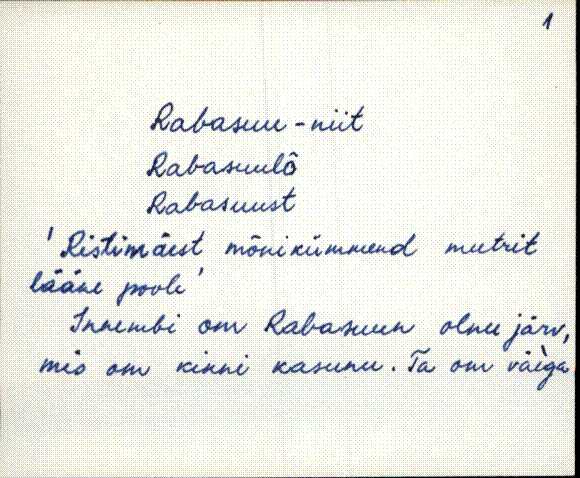 1
Rabasuu-niit
Rabasuulõ
Rabasuust
'Ristimäest mõnikümmend meetrit
lääne poole'
Innembi om Rabasuun olnu järv,
mis om kinni kasunu. Ta om väega